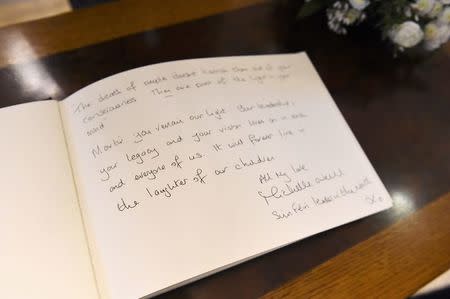 The death of people doesn't banish them out of your
consciousness. They are part of the light in your
mind.
Martin you remain our light. Our leadership,
your legacy and your vision lives on in each
and everyone of us. It will forever live in
the laughter of our children
All my love
Michelle O'Neill
Sinn Féin leader in the north
xo